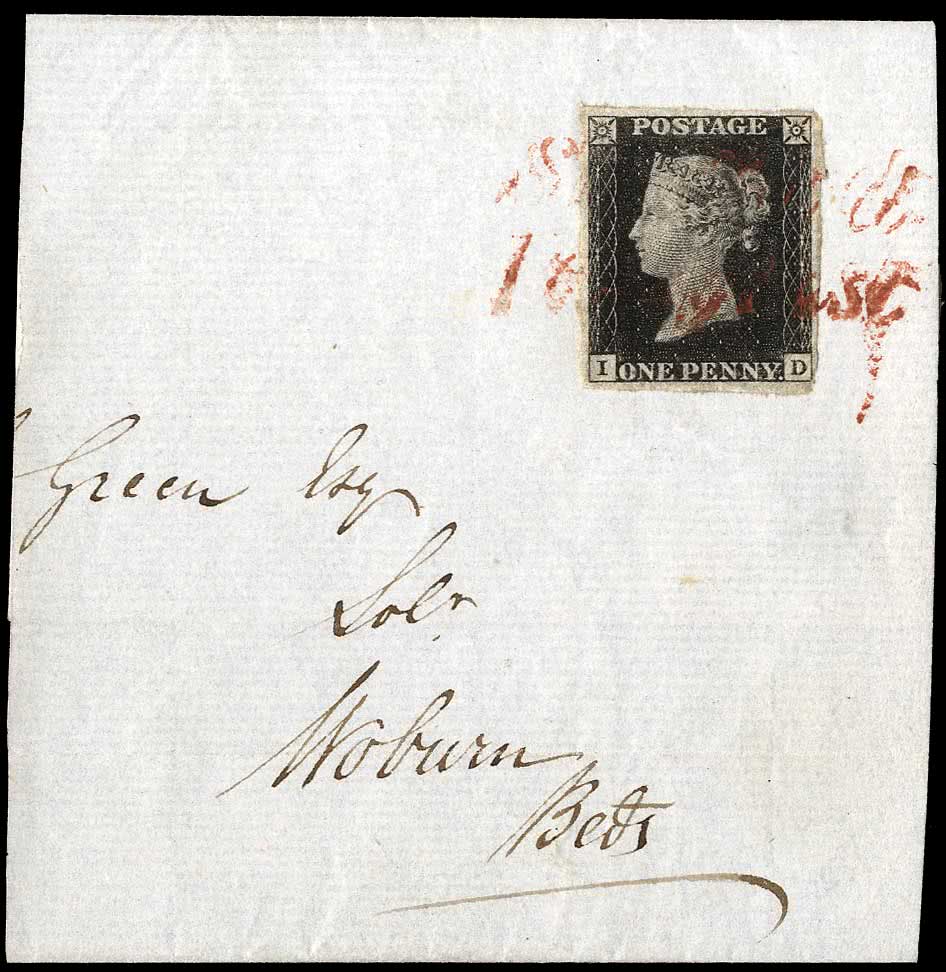 POSTAGE
I ONE PENNY. D
Green Esq
Solr
Woburn
Beds